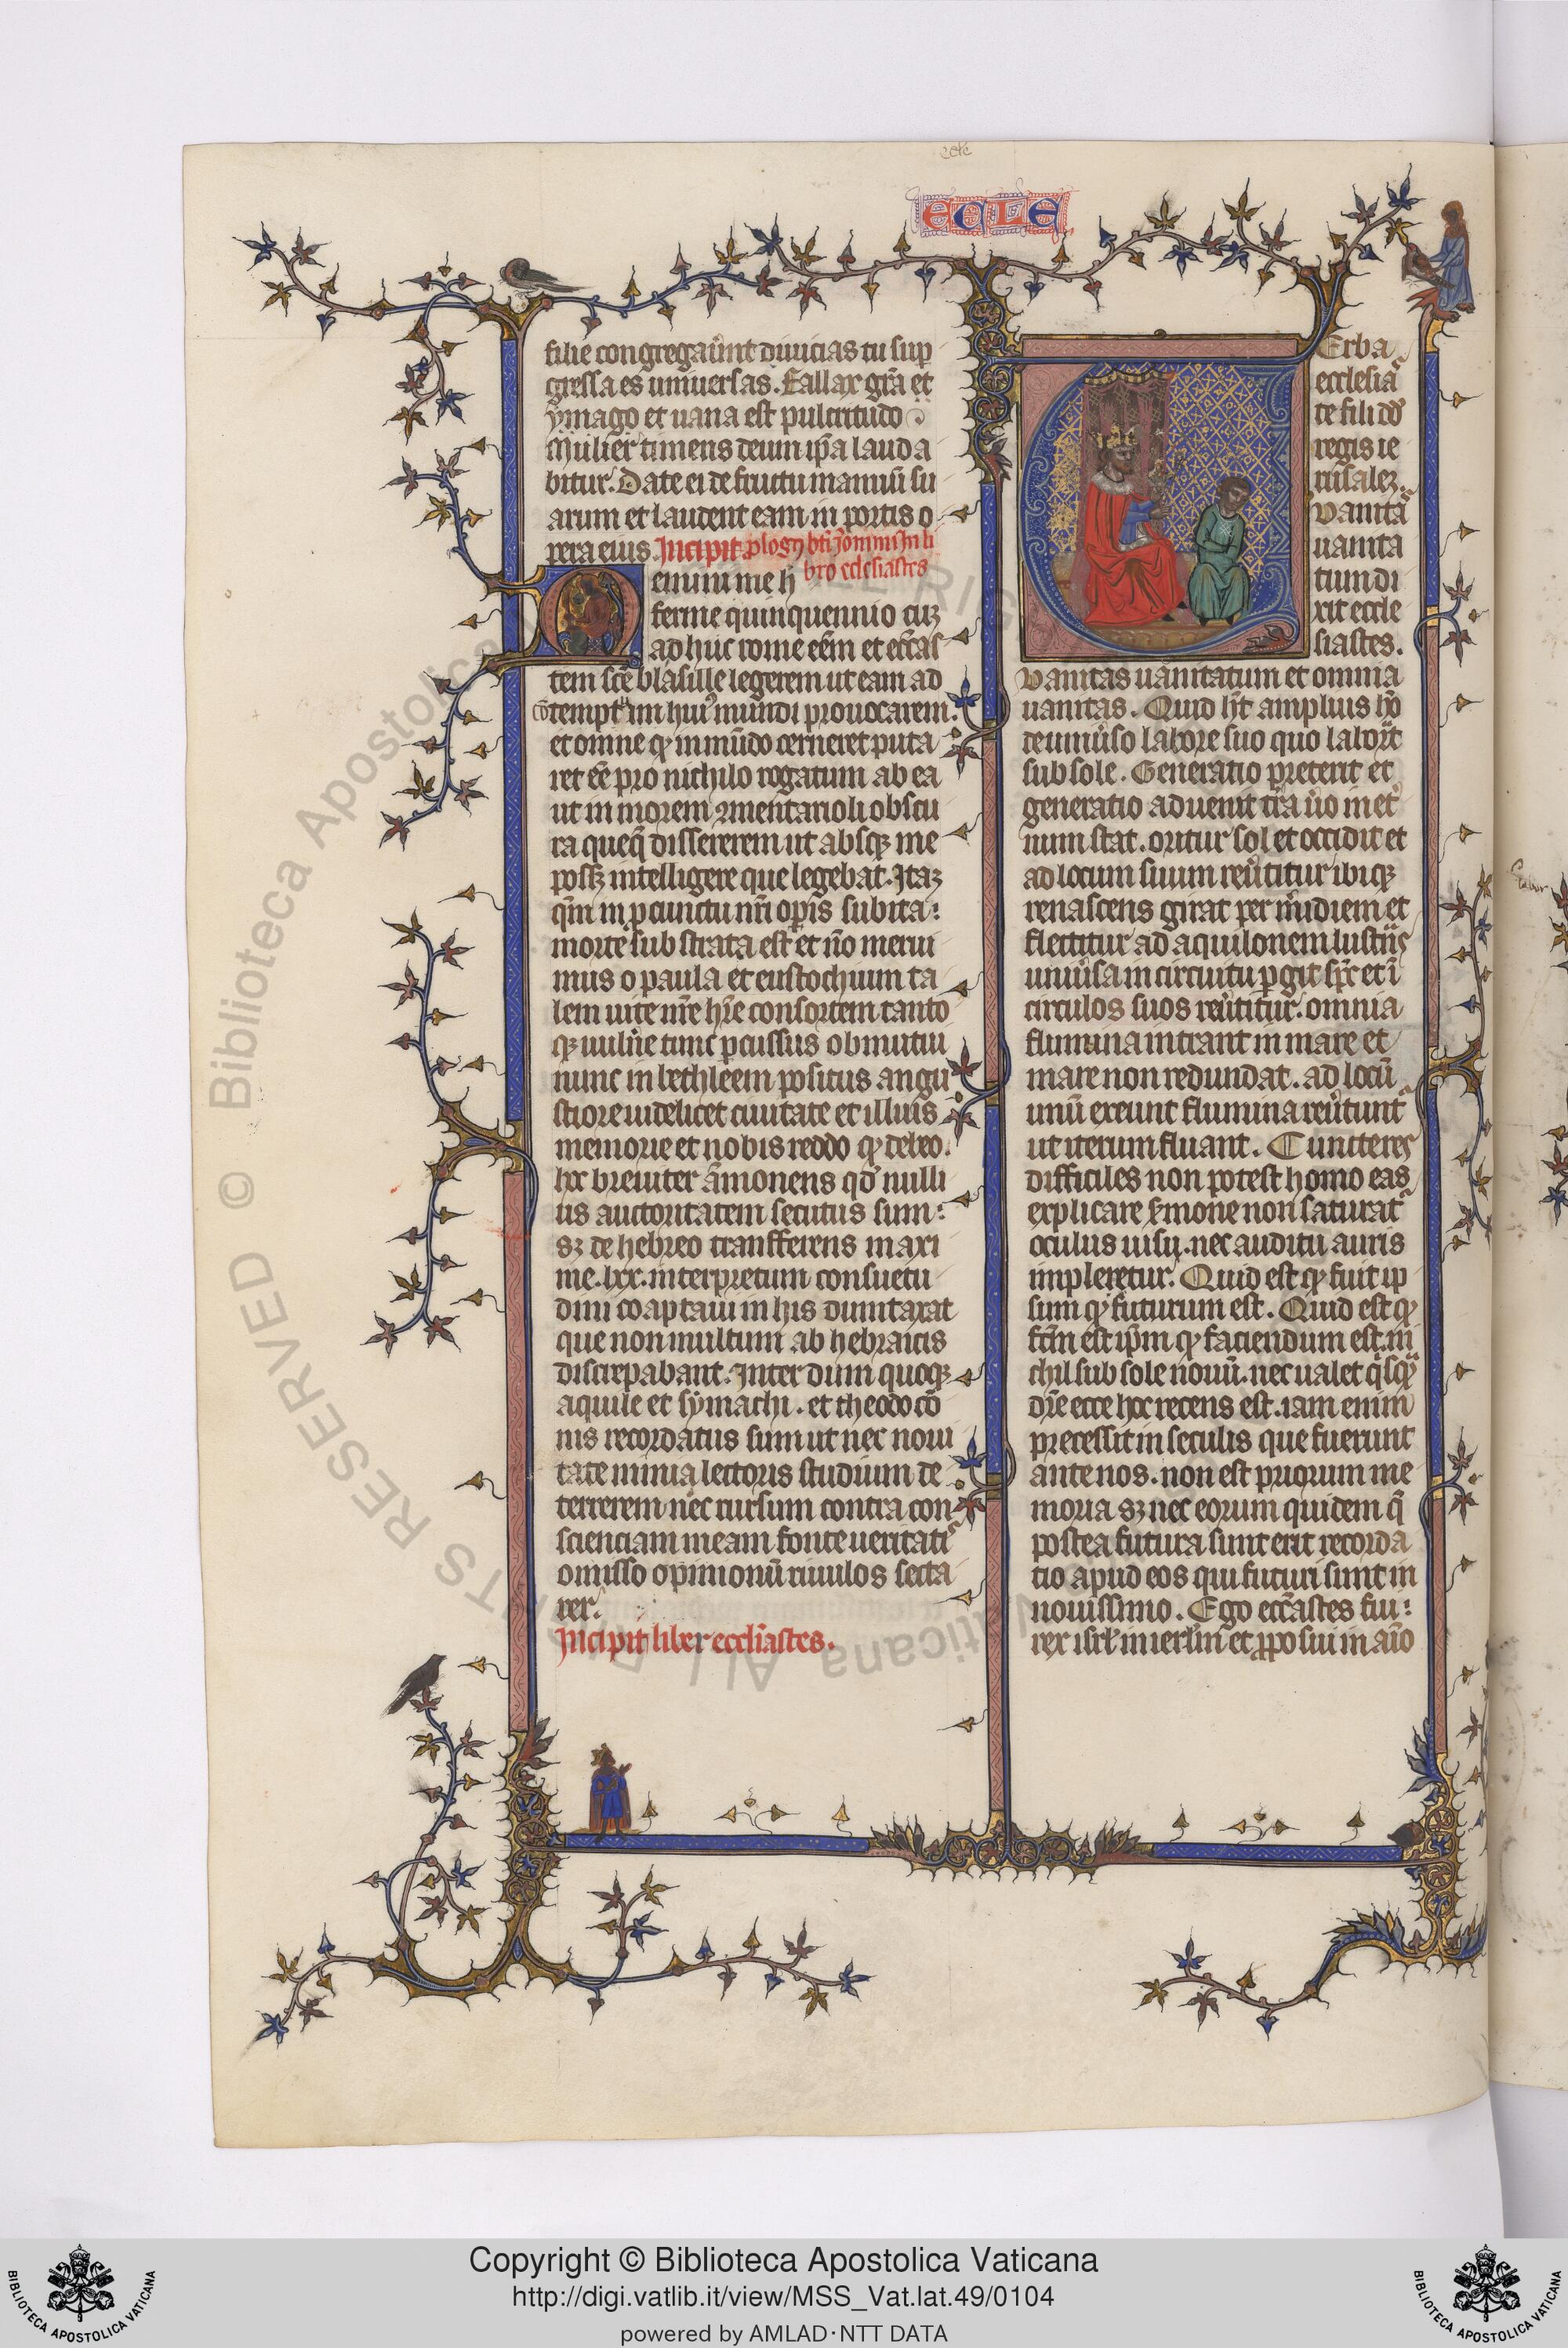 ecłe
ECLE
filie congregaũnt diuicias tu sup
gressa es uniuersas. Fallax grã et
ymago et uana est pulcritudo
Mulier timens deum ip̃a lauda
bitur. Date ei de fructu manuũ su
arum et laudent eam in portis o
pera eius. Incipit ꝓlogꝰ bti Jeronimi in li
bro ecclesiastes
emini me h
ferme quinquennio cuꝫ
ad huc rome eẽm et eccãs
tem scẽ blasille legerem ut eam ad
cõtemptũ im huiꝰ mundi prouocarem.
et omne qͥ in mũdo cerneret puta
ret eẽ pro nichilo rogatum ab ea
ut in morem ꝯmentarioli obscu
ra queqͣ dissererem ut absqꝫ me
possꝫ intelligere que legebat. Itaꝫ
qm̃ in ꝓcinctu nr̃i op̃is subita:
morte sub strata est et nõ merui
mus o paula et eustochium ta
lem uite nr̃e hr̃e consortem tanto
qꝫ uulñe tunc ꝑcussus obmutui
nunc in bethleem positus angu
stiore uidelicet ciuitate et illius
memorie et nobis reddo qͥ debeo.
hoc breuiter ãmonens qđ nulli
us auctoritatem secutus sum:
sꝫ de hebreo transferens maxi
me .lxx. interpretum consuetu
dini coaptaui in his dumtaxat
que non multum ab hebraicis
discrepabant. Inter dum quoqꝫ
aquile et symachi. et theodocõ
nis recordatus sum ut nec noui
tate nimia lectoris studium de
terrerem nec rursum contra con
scienciam meam fonte ueritatiˢ
omisso opinionũ riuulos secta
rer.
Incipit liber eccl̃iastes.
Erba
ecclesiaˢ
te fili dđ
regis ie
rusaleꝫ.
Uanitaˢ
uanita
tum di
xit eccle
siastes.
Uanitas uanitatum et omnia
uanitas. Quid ht̃ amplius hõ
de uniũso labore suo quo laborͣt
sub sole. Generatio preterit et
generatio aduenit tr̃a ũo in etͬ
num stat. oritur sol et occidit et
ad locum suum reũtitur ibiqꝫ
renascens girat per m̃idiem et
flectitur ad aquilonem lustrͣs
uniũsa in circuitu ꝑgit sp̃c et ĩ
circulos suos reũtitur. omnia
flumina intrant in mare et
mare non redundat. ad locũ
unũ exeunt flumina reũtuntͬ
ut iterum fluant. Cuncte reˢ
difficiles non potest homo eas
explicare s̃mone non saturatͬ
oculus uisu. nec auditu auris
impleretur. Quid est qͥ fuit ip
sum qͥ futurum est. Quid est qͥ
fc̃m est ip̃m qͥ faciendum est. ni
chil sub sole nouũ. nec ualet qͥsqͣ
dr̃e ecce hoc recens est. iam enim
precessit in seculis que fuerunt
ante nos. non est priorum me
moria sꝫ nec eorum quidem q̃
postea futura sunt erit recorda
tio apud eos qui futuri sunt in
nouissimo. Ego ecc̃astes fui:
rex isrl̃ in ierl̃m et ꝓposui in aĩo
© Biblioteca Apostolica Vaticana ALL RIGHTS RESERVED
Copyright © Biblioteca Apostolica Vaticana
http://digi.vatlib.it/view/MSS_Vat.lat.49/0104
powered by AMLAD·NTT DATA
BIBLIOTECA APOSTOLICA VATICANA
BIBLIOTECA APOSTOLICA VATICANA